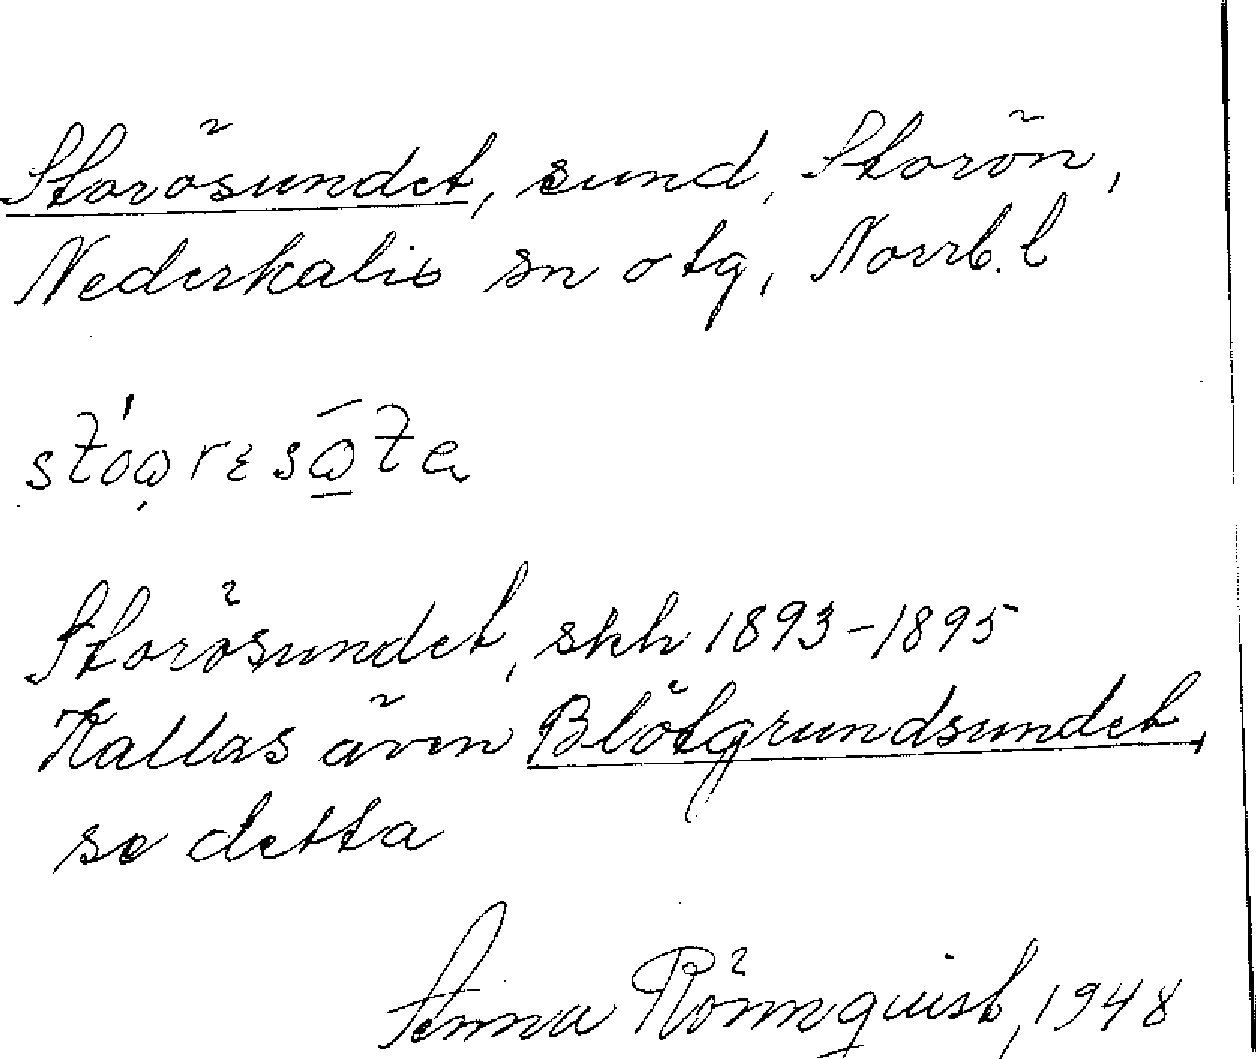 Storösundet, sund, Storön,
Nederkalix sn o tg, Norrb. l
Storösundet, skh 1893-1895
Kallas även Blötgrundsundet,
se detta
Rönnquist, 1948